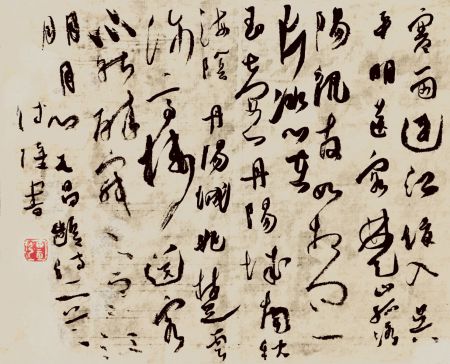 寒雨連江夜入吳
平明送客楚山孤洛
陽親友如相問一
片冰心在
玉壺丹陽城南秋
海陰丹陽城北楚雲
深高樓送客
不能醉寂寂寒江
明月心王昌齡詩二首
書